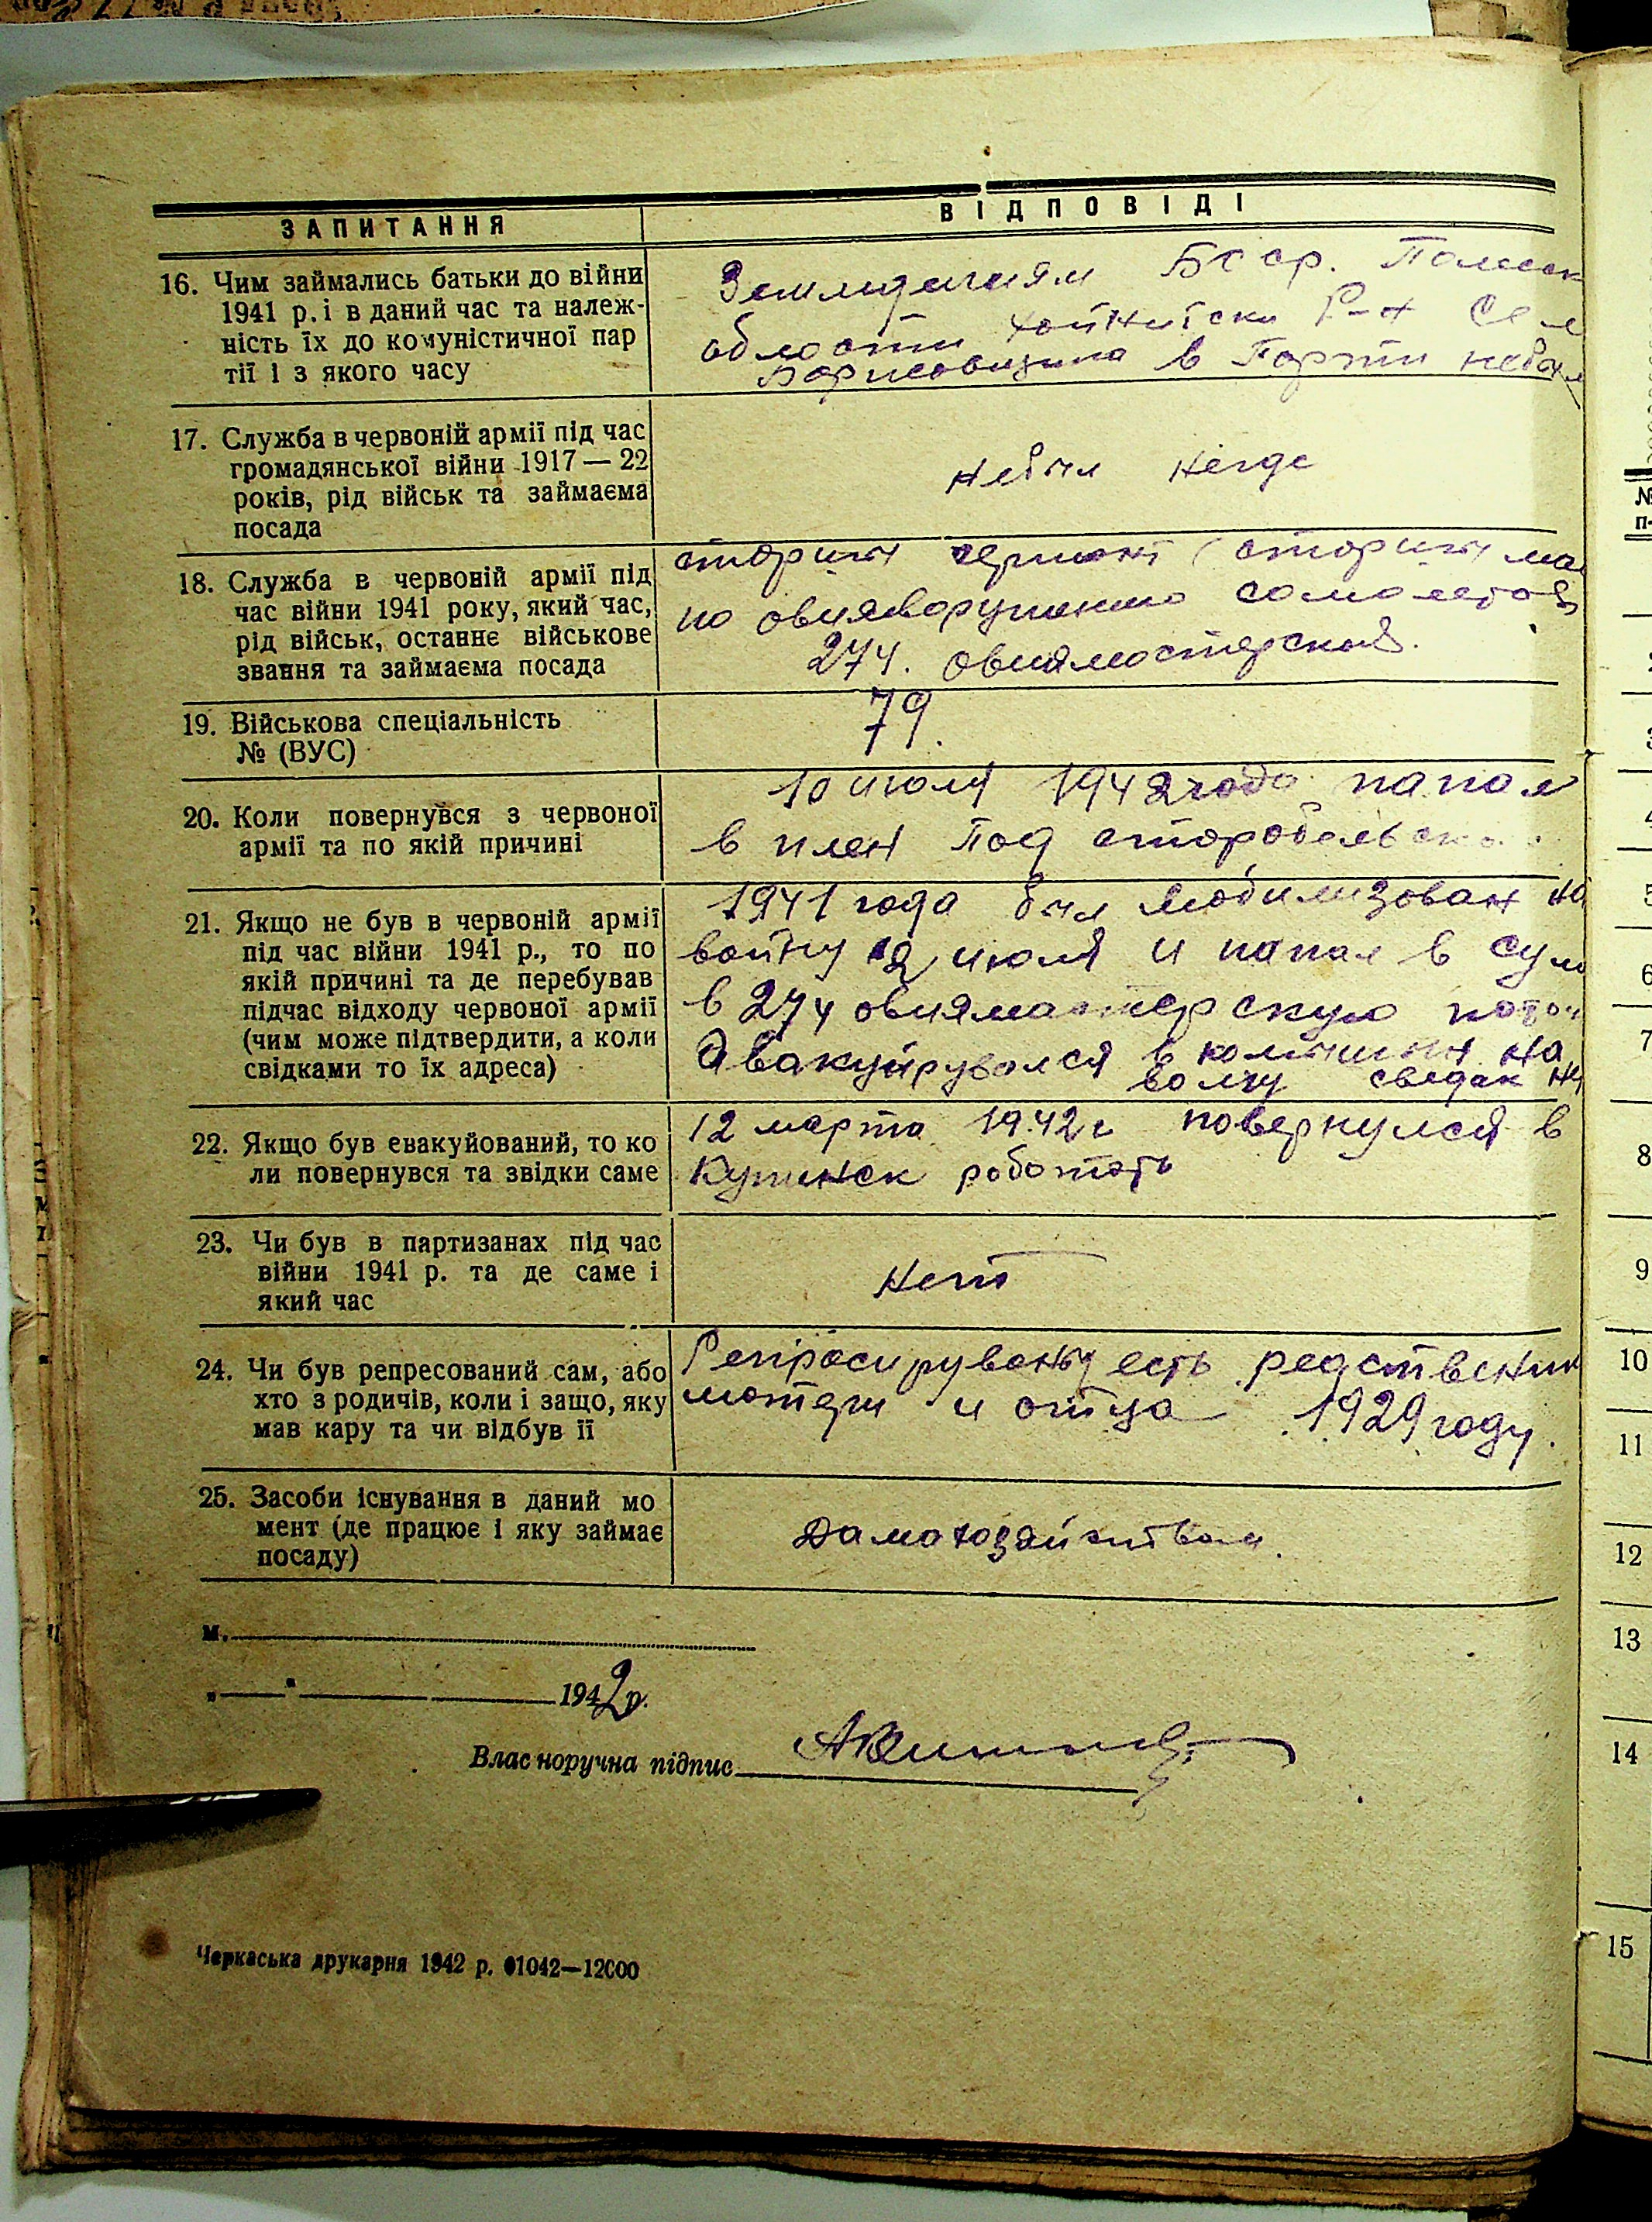 ЗАПИТАННЯ
ВІДПОВІДІ
16. Чим займались батьки до війни
1941 р. і в даний час та належ-
ність їх до комуністичної пар
тії і з якого часу
Бсср. Полеск
области Хойнитски Р-н Сел
Борисовщина в Парти небыл
17. Служба в червоній армії під час
громадянської війни 1917 — 22
років, рід військ та займаєма
посада
небыл негде
18. Служба в червоній армії під
час війни 1941 року, який час,
рід військ, останнє військове
звання та займаєма посада
старшы сержант (старшы мас
по самолетов
274. авиямастерской.
19. Військова спеціальність
№ (ВУС)
79.
20. Коли повернувся з червоної
армії та по якій причині
10 июля 1942 года папал
в плен Под
21. Якщо не був в червоній армії
під час війни 1941 р., то по
якій причині та де перебував
підчас відходу червоної армії
(чим може підтвердити, а коли
свідками то їх адреса)
1941 года был мобилизован на
войну 2 июля и папал в
в 274 авиямастерскую
Эвакуирувался в на
волгу
22. Якщо був евакуйований, то ко
ли повернувся та звідки саме
12 марта 1942 г повернулся в
Купинск работать
23. Чи був в партизанах під час
війни 1941 р. та де саме і
який час
Нет
24. Чи був репресований сам, або
хто з родичів, коли і защо, яку
мав кару та чи відбув її
есть
матери и отца 1929 году.
25. Засоби існування в даний мо
мент (де працює і яку займає
посаду)
м.
„ " 1942 р.
Власноручна підпис
Черкаська друкарня 1942 р. 01042—12000
№
п-
3
4
5
6
7
8
9
10
11
12
13
14
15